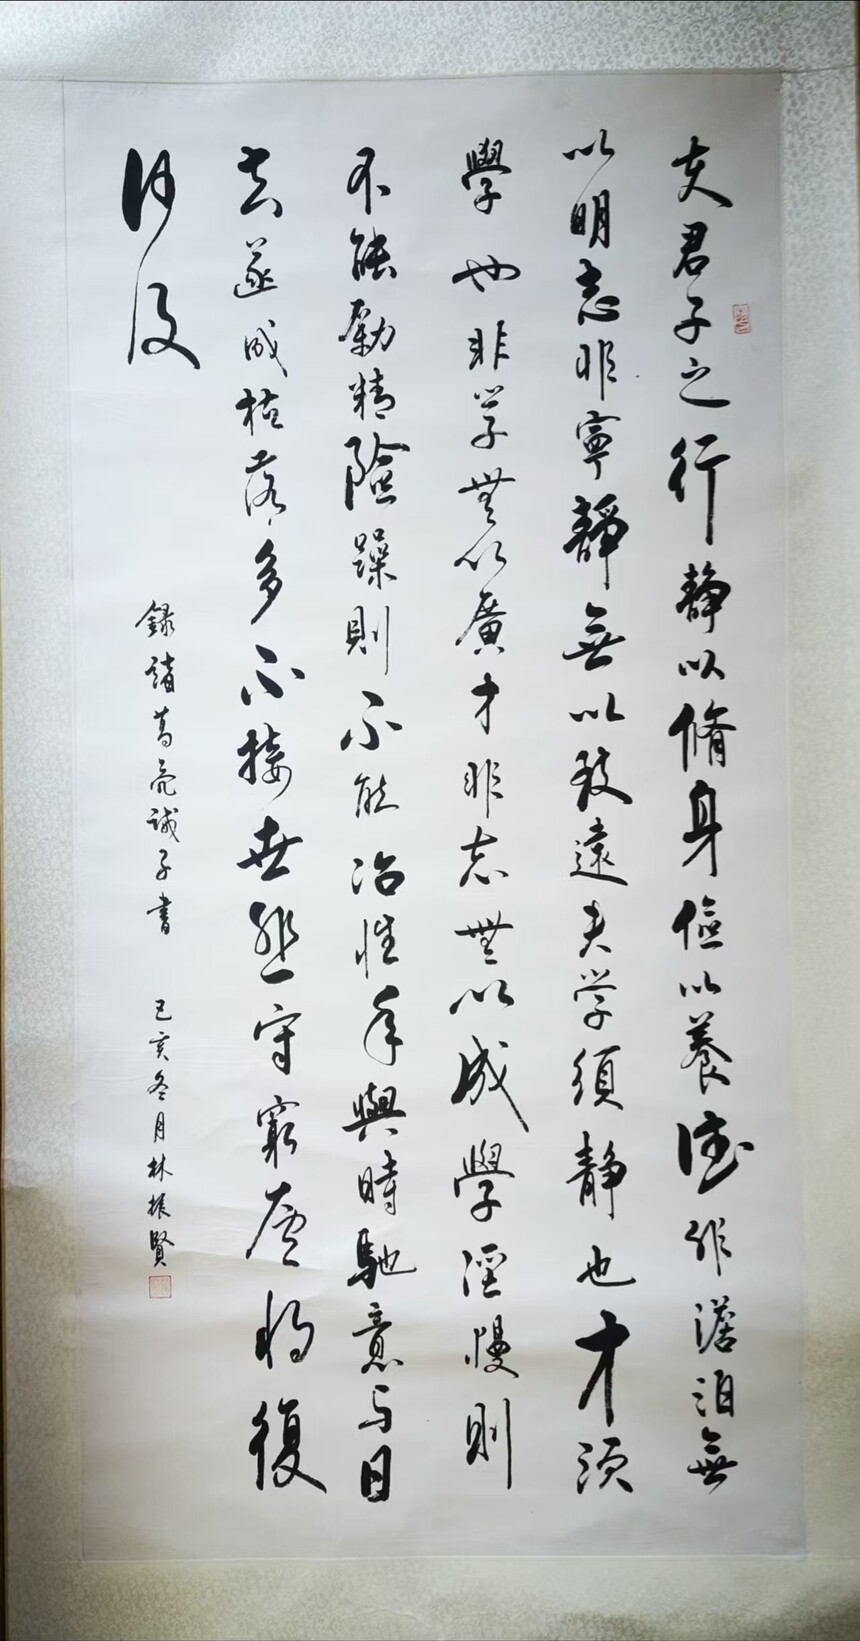 夫君子之行靜以脩身儉以養德非澹泊無
以明志非寧靜無以致遠夫学須靜也才須
學也非学無以廣才非志無以成學淫慢則
不能勵精險躁則不能冶性年與時馳意与日
去遂成枯落多不接世悲守窮廬将復
何及
録諸葛亮誡子書 己亥冬月林振賢